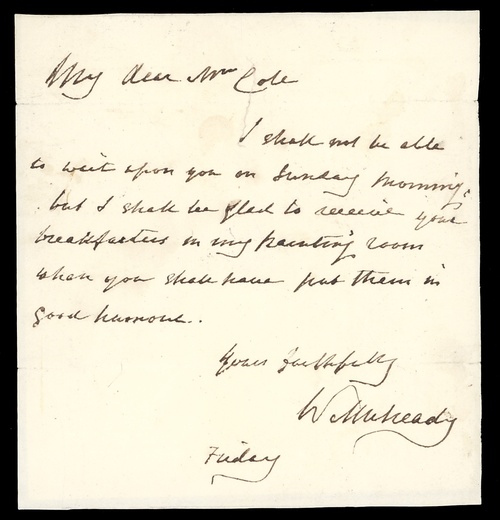 My dear Mrs Cole
I shall not be able
to wait upon you on Sunday morning,
but I shall be glad to receive your
breakfasters in my painting room
when you shall have put them in
good humour.
Yours faithfully
W Mulready
Friday